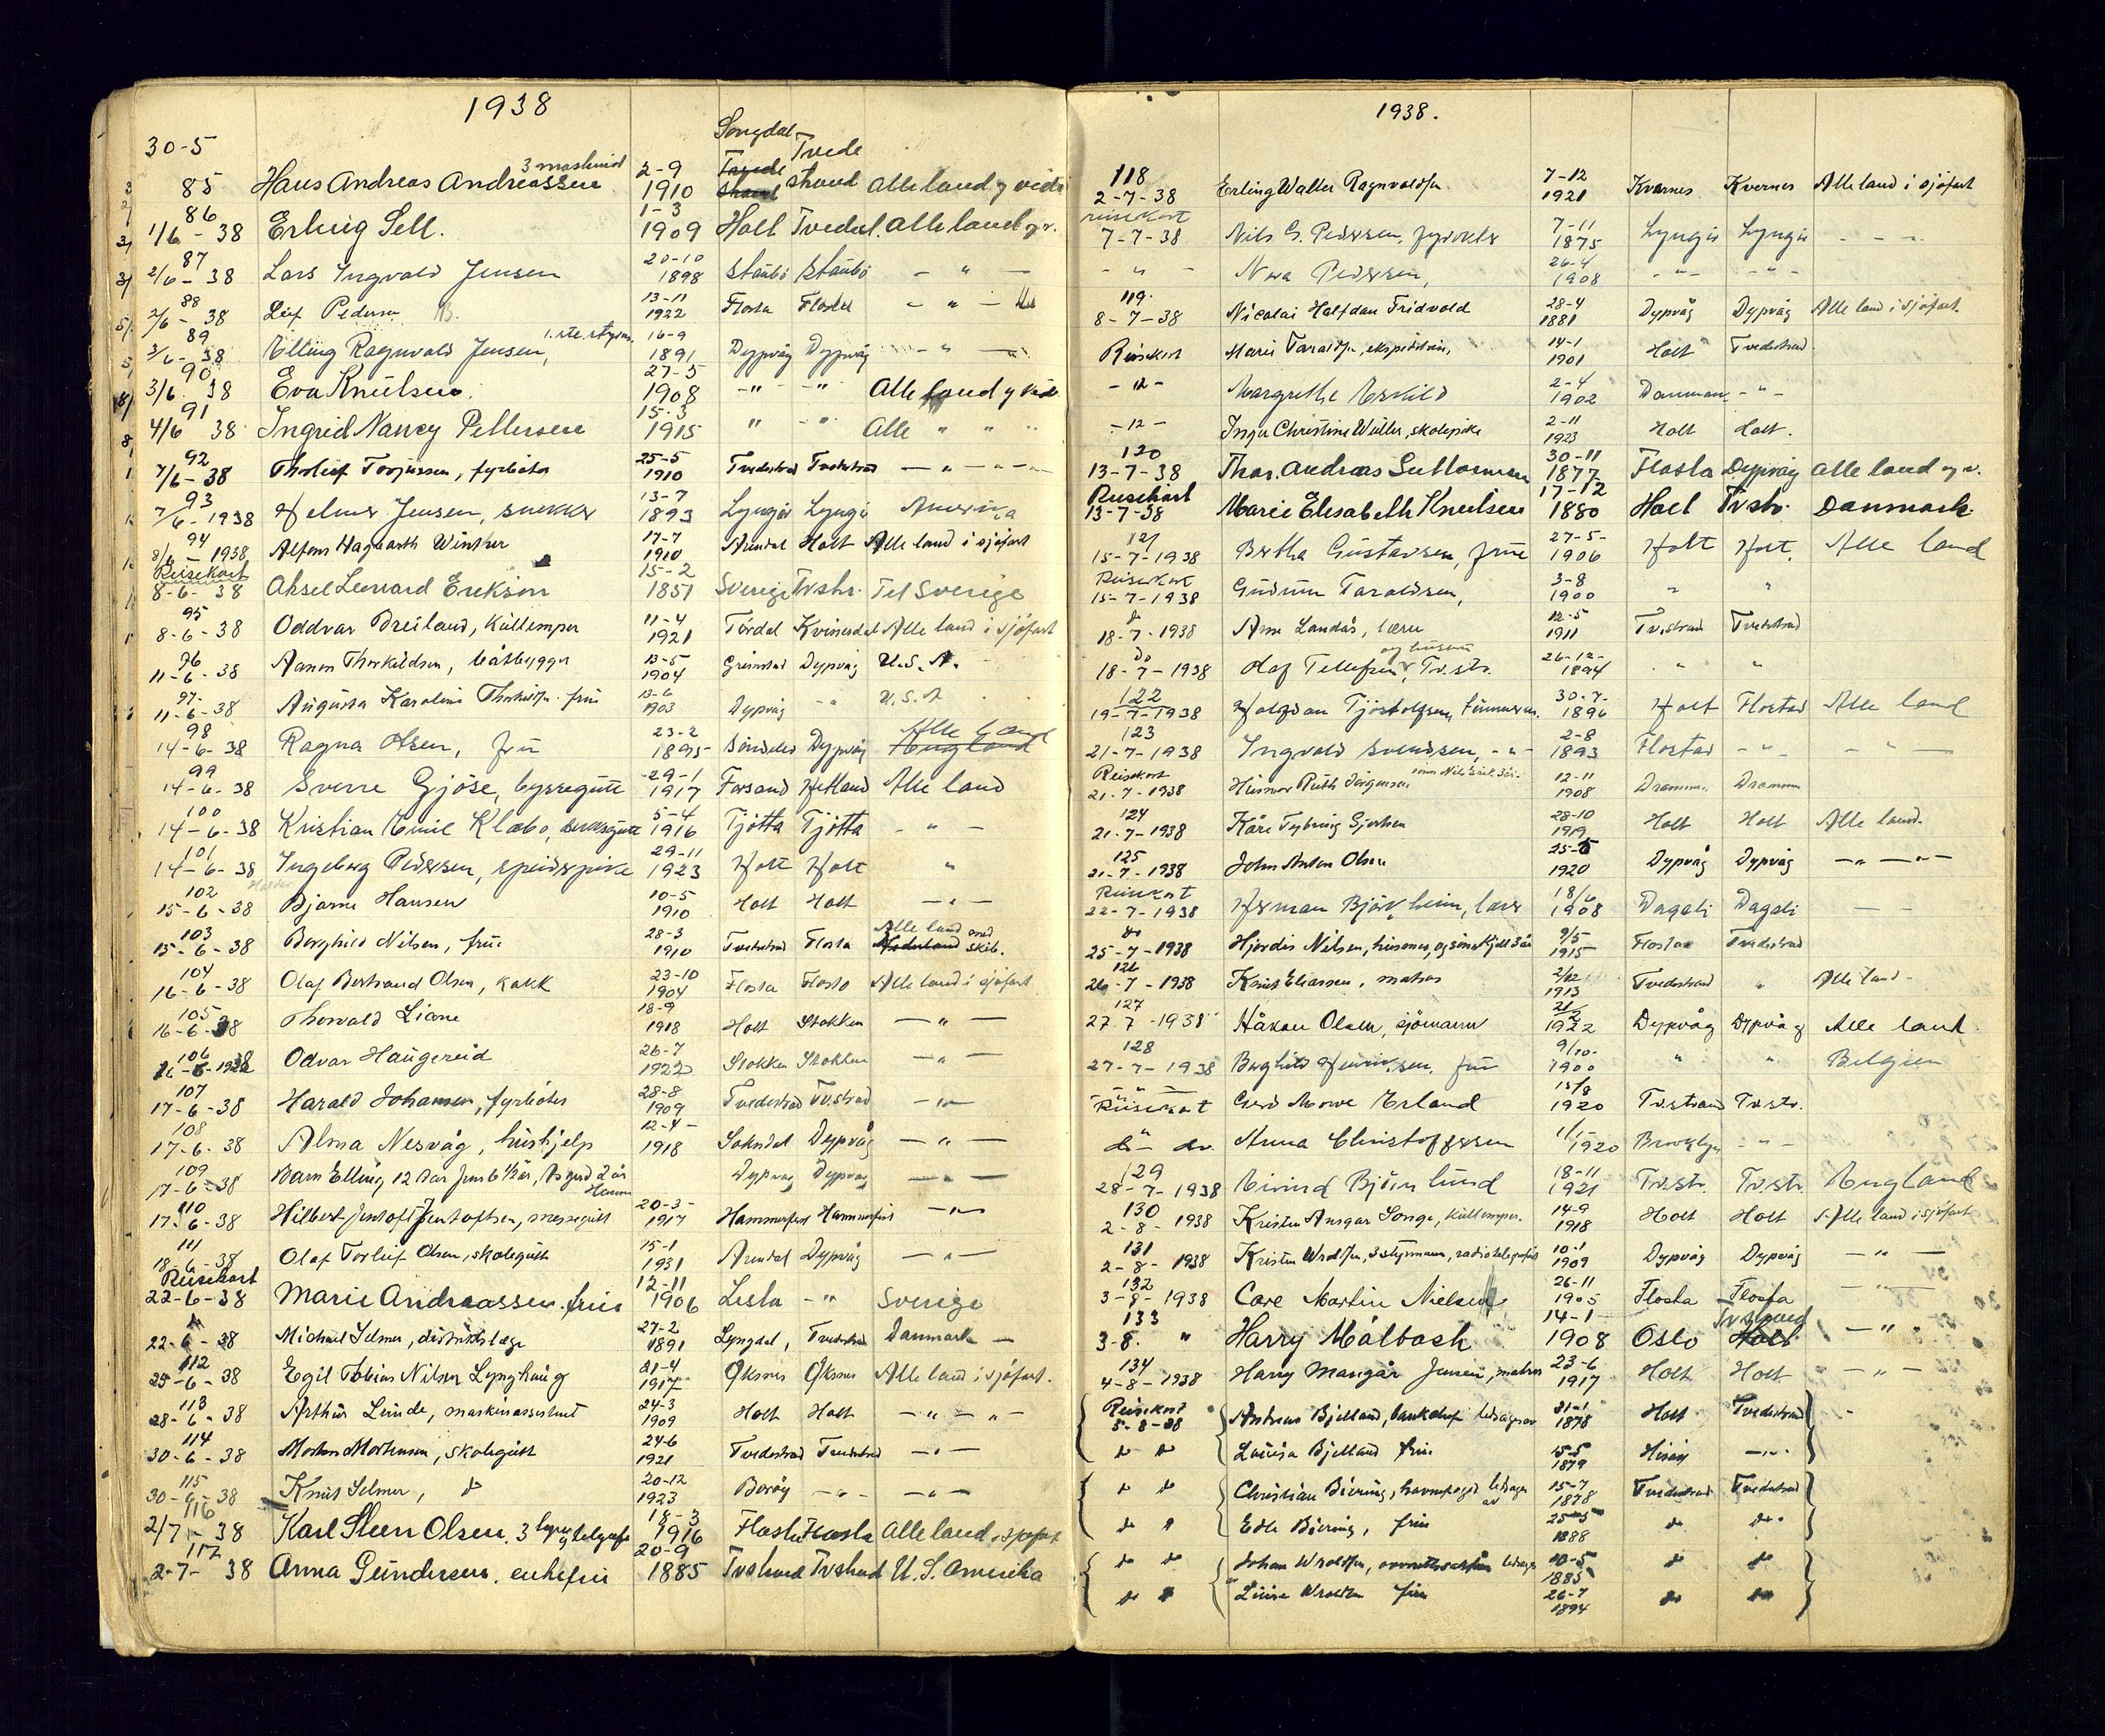 1938
30-5
85 Hans Andreas Andreassen 3 maskinist 2-9 1910 Songdal Tvedestrand Alle land
86 1/6 - 38 Erling Sell. 1-3 1909 Holt Tvedest. Alle land
87 2/6 - 38 Lars Ingvald Jensen 20-10 1898 Staubø Staubø — " —
88 2/6 - 38 Leif Pedersen 13-11 1922 Flosta Flosta — " —
89 3/6 - 38 Elling Ragnvald Jensen, 1.ste. styrm. 16-9 1891 Dypvåg Dypvåg — " —
90 3/6 38 Eva Knutsen. 27-5 1908 — " — " Alle land
91 4/6 38 Ingrid Nancy Pettersen 15-3 1915 " — " Alle " "
92 7/6 - 38 Thorleif Torjussen, fyrbøter 25-5 1910 Tvedestrand Tvedestrand — " — " —
93 7/6 - 1938 Helmer Jensen, snekker 13-7 1893 Lyngør Lyngør Amerika
94 8/6 - 1938 Alfons Hagbarth Winther 17-7 1910 Arendal Holt Alle land i sjøfart
Reisekort 8-6-38 Aksel Leonard Erikson 15-2 1851 Sverige Tvstr. Til Sverige
95 8-6-38 Oddvar Dreiland, Kullemper 11-4 1921 Tördal Kvinesdal Alle land i sjøfart
96 11-6-38 Aanen Thorkildsen, båtbygger 13-5 1904 Grimstad Dypvåg U.S.A.
97 11-6-38 Augusta Karoline Thorkilds. frue 13-6 1903 Dypvåg — " U.S.A
98 14-6-38 Ragna Olsen, frue 23-2 1895 Søndeled Dypvåg Alle Land England
99 14-6-38 Sverre Gjöse, byssegutt 29-1 1917 Forsand Hetland Alle land
100 14-6-38 Kristian Emil Klæbo, dekksgutt 5-4 1916 Tjötta Tjötta — " —
101 14-6-38 Ingeborg Pedersen, speiderpike 29-11 1923 Holt Holt "
102 15-6-38 Bjarne Hansen 10-5 1910 Holt Holt — " —
103 15-6-38 Borghild Nilsen, frue 28-3 1910 Tvedestrand Flosta Alle land med skib.
104 16-6-38 Olaf Bertrand Olsen, kokk 23-10 1904 Flosta Flosta Alle land i sjøfart
105 16-6-38 Thorvald Liane 18-9 1918 Holt Stokken — " —
106 16-6-1938 Odvar Haugereid 26-7 1922 Stokken Stokken — " —
107 17-6-38 Harald Johansen, fyrbøter 28-8 1909 Tvedestrand Tv.strand — " —
108 17-6-38 Alma Nesvåg, hushjelp 12-4- 1918 Sokndal Dypvåg — " —
109 17-6-38 Barn Elling 12 år Jens 6 1/2 år, Asgerd 2 år Dypvåg Dypvåg — " —
110 17-6-38 Hilbert Jentoft Jentoftsen, messegutt 20-3- 1917 Hammerfest Hammerfest — " —
111 18-6-38 Olaf Torleif Olsen, skolegutt 15-1 1931 Arendal Dypvåg — " —
Reisekort 22-6-38 Marie Andreassen. frue 12-11 1906 Lista — " Sverige
22-6-38 Michael Selmer, distriktslæge 27-2 1891 Lyngdal, Tvedestrand Danmark —
112 25-6-38 Egil Tobias Nilsen Lynghaug 21-4 1917 Øksnes Øksnes Alle land i sjøfart.
113 28-6-38 Arthur Lunde, maskinassistent 24-3 1909 Holt Holt — " — " —
114 30-6-38 Morten Mortensen, skolegutt 24-6 1921 Tvedestrand Tvedestrand — " —
115 30-6-38 Knut Selmer, do 20-12 1923 Borøy — " — — " —
116 2/7 - 38 Karl Steen Olsen. 18-3 1916 Flosta Flosta Alle land i sjøfart
117 2-7- 38 Anna Gundersen. enkefrue 20-9 1885 Tvstrand Tvstrand U.S. Amerika
1938.
118 2-7-38 Erling Walter Ragnvaldsen 7-12 1921 Kvernes Kvernes Alle land i sjøfart
reisekort 7-7-38 Nils G. Pedersen, fyrvokter 7-11 1875 Lyngør Lyngør - - -
- " - Nora Pedersen, 26-4 1908 - " - - " -
119. 8-7-38 Nicolai Halfdan Fridvold 28-4 1881 Dypvåg Dypvåg Alle land i sjøfart.
Reisekort Marie Taraldsen, ekspeditrise, 14-1 1901 Holt Tvedestrand.
- " - Margrethe Eskild 2-4 1902 Danmark - " -
- " - Inger Christine Wüller, skolepike 2-11 1923 Holt Holt.
120 13-7-38 Thor. Andreas Guttormsen 30-11 1877 Flosta Dypvåg Alle land
Reisekort 13-7-38 Marie Elisabeth Knutsen 17-12 1880 Holt Tvstr. Danmark
121 15-7-1938 Bertha Gustavsen, frue 27-5- 1906 Holt Holt. Alle land
Reisekort 15-7-1938 Gudrun Taraldsen, 3-8 1900 " "
do 18-7-1938 Arne Landås, lærer 12-5 1911 Tv.strand Tvedestrand
do 18-7-1938 Olaf Tellefsen, og hustru Tv.str. 26-12- 1894 " "
122 19-7-1938 Halfdan Tjostolfsen, tømmerm. 30-7- 1896 Holt Flostad Alle land
123 21-7-1938 Ingvald Svendsen, - " - 2-8 1893 Flostad - " - - " —
Reisekort 21-7-1938 Husmor Ruth Jørgensen 12-11 1908 Drammen Drammen
124 21-7-1938 Kåre Tybring Gjertsen 28-10 1919 Holt Holt Alle land.
125 21-7-1938 John Anton Olsen 25-5 1920 Dypvåg Dypvåg — " — " —
Reisekort 22-7-1938 Herman Björkheim, lærer 18/6 1908 Dagali Dagali — —
do 25-7-1938 Hjørdis Nilsen, husmor, og sønn Kjell 3 år 9/5 1915 Flostad Tvedestrand
126 26-7-1938 Knut Eliassen, matros 2/12 1913 Tvedestrand " Alle land
127 27.7-1938 Håkon Olsen, sjömann 21/2 1922 Dypvåg Dypvåg Alle land.
128 27-7-1938 Borghild Henriksen. frue 9/10- 1900 " " Belgien
Reisekort Gerd Mowe Erland 15/8 1920 Tv.strand Tv.str.
do Anna Christoffersen 1920 Brooklyn - " -
129 28-7-1938 Eivind Björnlund 18-11 1921 Tv.str. Tv.str. England
130 2-8-1938 Kristen Ansgar Songe, kullemper. 14-9 1918 Holt Holt Alle land i sjøfart
131 2-8-1938 Kristen Wroldsen, 3 styrmann, radiotelegrafist 10-1 1909 Dypvåg Dypvåg — " —
132 3-8-1938 Care Martin Nielsen 26-11 1905 Flosta Flosta
133 3-8. " Harry Målbach 14-1 1908 Oslo Tv.strand Holt — " "
134 4-8-1938 Harry Mangår Jensen, matros 23-6 1917 Holt Holt — " —
Reisekort 5-8-38 Andreas Bjelland, banksjef ledsaget av 21-1 1878 Holt Tvedestrand
do do Lovisa Bjelland frue 15-5 1879 Hisøy — " —
do do Christian Biering, havnefoged ledsaget av 15-7 1878 Tvedestrand Tvedestrand
do do Edle Biering, frue 25-5 1888 do do
do do Johan Wroldsen, ledsaget av 10-5 1885 do do
do do Luise Wroldsen frue 26-7 1894 do do